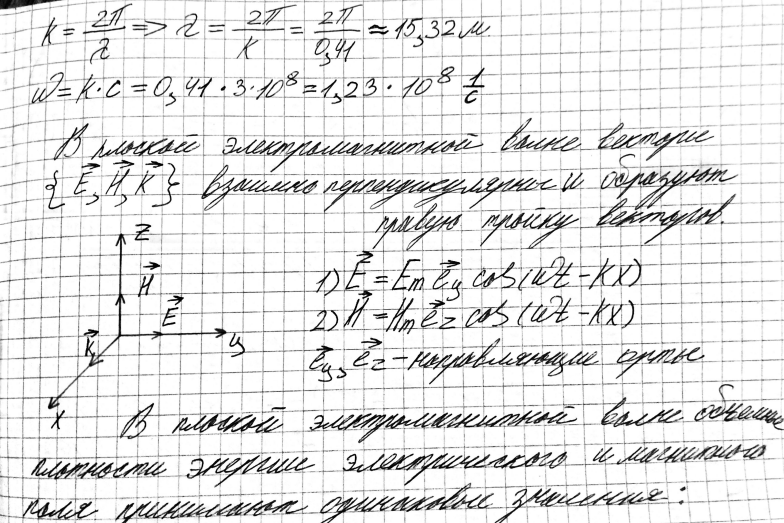 K = 2π/λ => λ = 2π/K = 2π/0,41 ≈ 15,32 м
ω = K·c = 0,41·3·10⁸ = 1,23·10⁸ 1/с
В плоской электромагнитной волне векторы
{E⃗, H⃗, K⃗} взаимно перпендикулярны и образуют
правую тройку векторов.
Z
H⃗
E⃗
K⃗
y
X
1) E⃗ = Eₘ e⃗y cos(ωt - KX)
2) H⃗ = Hₘ e⃗z cos(ωt - KX)
e⃗y, e⃗z - направляющие орты
В плоской электромагнитной волне объемные
плотности энергии электрического и магнитного
поля принимают одинаковые значения: